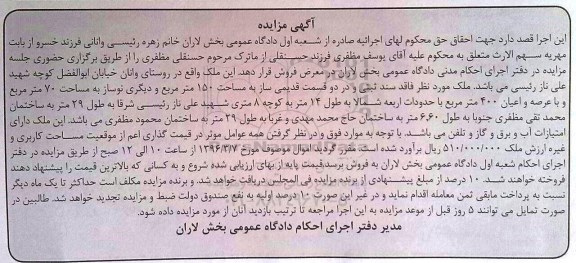 آگهی مزایده
این اجرا قصد دارد جهت احقاق حق محکوم لهای اجرائیه صادره از شعبه اول دادگاه عمومی بخش لاران خانم زهره رئیسی وانانی فرزند خسرو از بابت
مهریه سهم الارث متعلق به محکوم علیه آقای یوسف مظفری فرزند حسنقلی از ماترک مرحوم حسنقلی مظفری را از طریق برگزاری حضوری جلسه
مزایده در دفتر اجرای احکام مدنی دادگاه عمومی بخش لاران در معرض فروش قرار دهد. این ملک واقع در روستای وانان خیابان ابوالفضل کوچه شهید
علی ناز رئیسی می باشد. ملک مورد نظر فاقد سند ثبتی و در دو قسمت قدیمی ساز به مساحت ۱۵۰ متر مربع و دیگری نوساز به مساحت ۷۰ متر مربع
و با عرصه و اعیان ۴۰۰ متر مربع با حدودات اربعه شمالا به طول ۱۴ متر به کوچه ۸ متری شهید علی ناز رئیسی شرقا به طول ۲۹ متر به ساختمان
محمد تقی مظفری جنوبا به طول ۶،۶۰ متر به ساختمان حاج محمد مهدی و غربا به طول ۲۹ متر به ساختمان محمود مظفری می باشد. این ملک دارای
امتیازات آب و برق و گاز و تلفن می باشد. با توجه به موارد فوق و در نظر گرفتن همه عوامل موثر در قیمت گذاری اعم از موقعیت مساحت کاربری و
غیره ارزش ملک ۵۱۰/۰۰۰/۰۰۰ ریال برآورد شده است. مقرر گردید اموال موصوف مورخ ۱۳۹۶/۳/۷ از ساعت ۱۰ الی ۱۲ صبح از طریق مزایده در دفتر
اجرای احکام شعبه اول دادگاه عمومی بخش لاران به فروش برسد قیمت پایه از بهای ارزیابی شده شروع و به کسانی که بالاترین قیمت را پیشنهاد دهند
فروخته خواهند شد. ۱۰ درصد از مبلغ پیشنهادی از برنده مزایده فی المجلس دریافت خواهد شد. و برنده مزایده مکلف است حداکثر تا یک ماه دیگر
نسبت به پرداخت مابقی ثمن معامله اقدام نماید و در غیر این صورت ۱۰ درصد اولیه به نفع صندوق دولت ضبط و مزایده تجدید خواهد شد. طالبین در
صورت تمایل می توانند ۵ روز قبل از موعد مزایده به این اجرا مراجعه تا ترتیب بازدید آنان از مورد مزایده داده شود.
مدیر دفتر اجرای احکام دادگاه عمومی بخش لاران